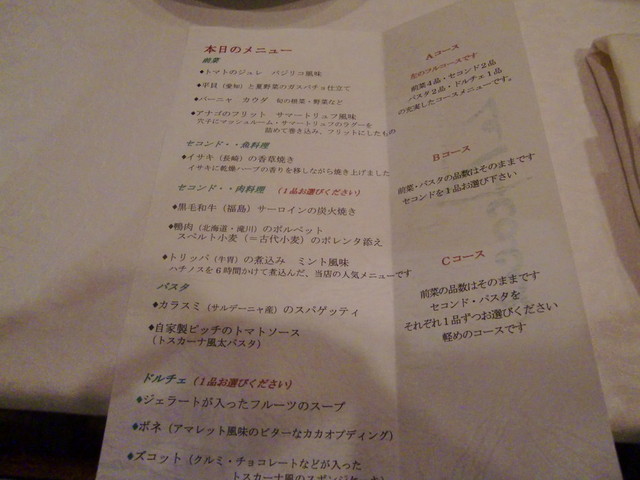 本日のメニュー
前菜
◆トマトのジュレ　バジリコ風味
◆平貝（愛知）と夏野菜のガスパチョ仕立て
◆バーニャ　カウダ　旬の根菜・野菜など
◆アナゴのフリット　サマートリュフ風味
穴子にマッシュルーム・サマートリュフのラグーを
詰めて巻き込み、フリットにしたもの
セコンド・・魚料理
◆イサキ（長崎）の香草焼き
イサキに乾燥ハーブの香りを移しながら焼き上げました
セコンド・・肉料理　（１品お選びください）
◆黒毛和牛（福島）サーロインの炭火焼き
◆鴨肉（北海道・滝川）のポルペット
スペルト小麦（＝古代小麦）のポレンタ添え
◆トリッパ（牛胃）の煮込み　ミント風味
ハチノスを６時間かけて煮込んだ、当店の人気メニューです
パスタ
◆カラスミ（サルデーニャ産）のスパゲッティ
◆自家製ピッチのトマトソース
（トスカーナ風太パスタ）
ドルチェ　（１品お選びください）
◆ジェラートが入ったフルーツのスープ
◆ボネ（アマレット風味のビターなカカオプディング）
◆ズコット（クルミ・チョコレートなどが入った
トスカーナ風のスポンジケーキ）
Aコース
左のフルコースです
前菜４品・セコンド２品
パスタ２品・ドルチェ１品
の充実したコースメニューです。
Bコース
前菜・パスタの品数はそのままです
セコンドを１品お選び下さい
Cコース
前菜の品数はそのままです
セコンド・パスタを
それぞれ１品ずつお選びください
軽めのコースです